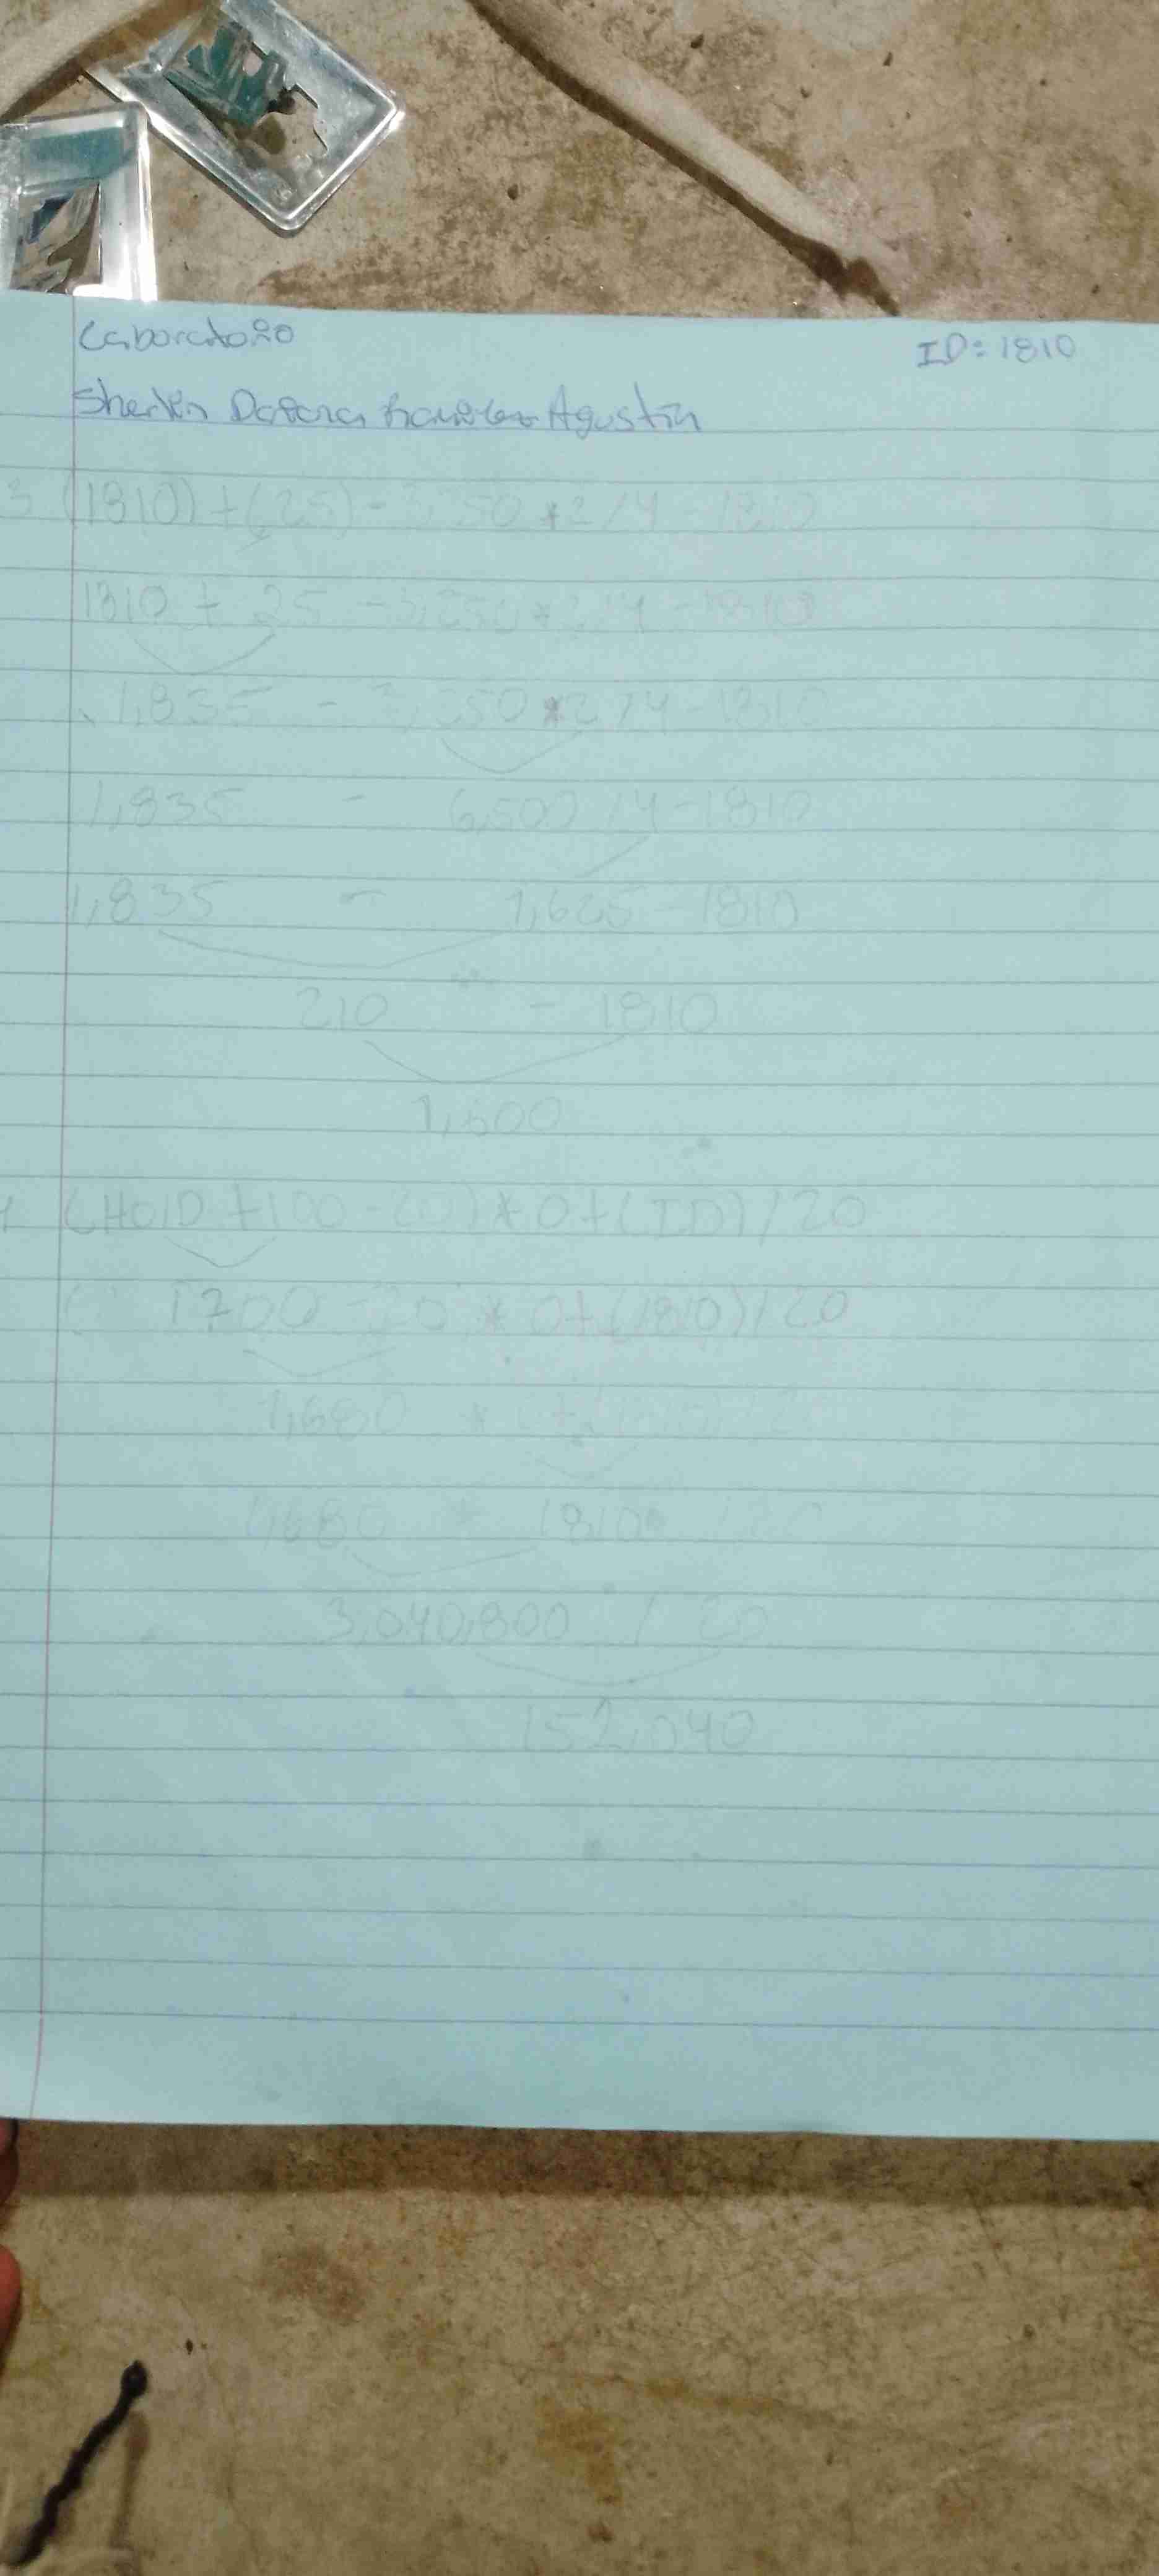 Laboratorio
ID: 1810
Agustin
3 (1810) + (25) - 3,250 * 2 / 4 - 1810
1810 + 25 - 3,250 * 2 / 4 - 1810
1,835 - 3,250 * 2 / 4 - 1810
1,835 - 6,500 / 4 - 1810
1,835 - 1,625 - 1810
210 - 1810
1,600
+ 100 - 20) * 0 + (ID) / 20
1700 - 20 * 0 + (1810) / 20
1,680 *
1,680 * 1810
3,040,800 / 20
152,040